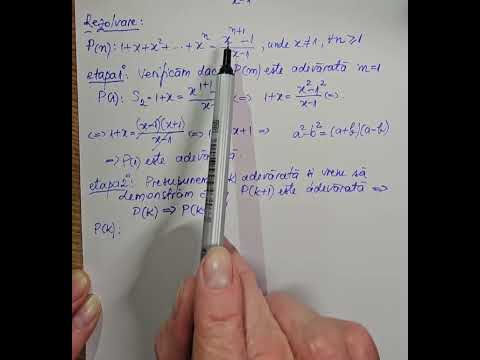 x-1
Rezolvare:
P(n): 1+x+x²+...+xⁿ = (xⁿ⁺¹-1)/(x-1), unde x≠1, ∀n≥1
etapa 1°: Verificăm dacă P(n) este adevărată n=1
P(1): S₂=1+x = x¹⁺¹ ⟺ 1+x = (x²-1²)/(x-1)
⟺ 1+x = (x-1)(x+1)/(x-1) ⟺ x+1 ⇒ a²-b²=(a+b)(a-b)
⇒ P(1) este adevărată.
etapa 2°: Presupunem adevărată și vrem să
demonstrăm P(k+1) este adevărată ⟺
P(k) ⇒ P(k
P(k):